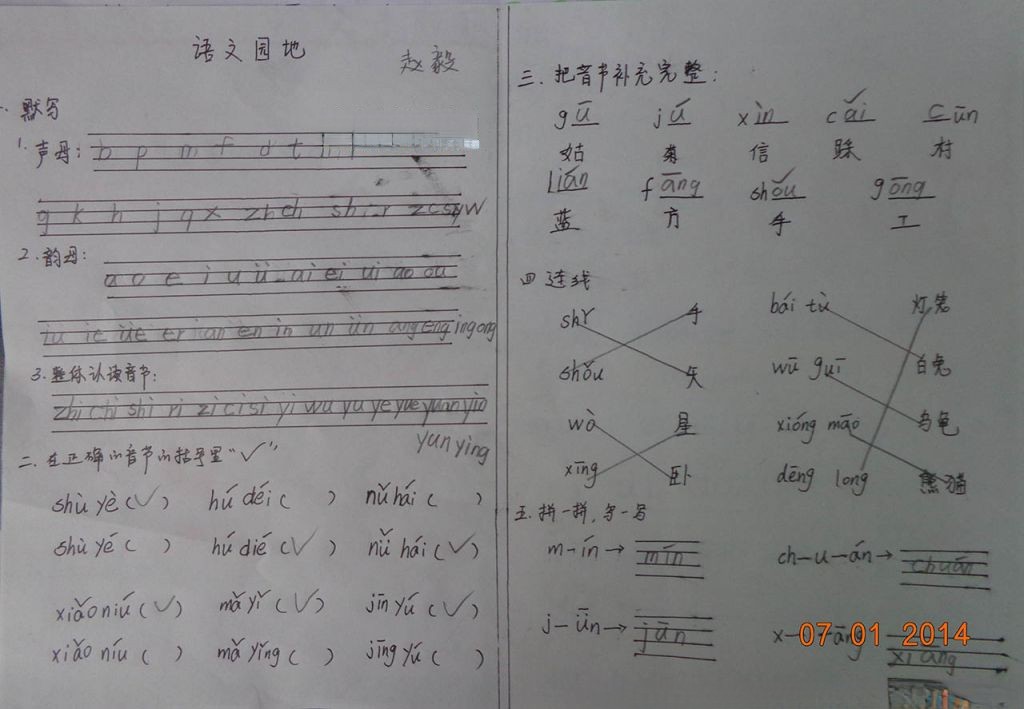 语文园地
赵毅
一、默写
1. 声母：b p m f d t n l
g k h j q x zh ch sh r z c s y w
2. 韵母：
a o e i u ü ai ei ui ao ou
iu ie üe er an en in un ün ang eng ing ong
3. 整体认读音节：
zhi chi shi ri zi ci si yi wu yu ye yue yuan yin
yun ying
二、在正确的音节的括号里“✓”
shù yè (✓) hú déi ( ) nǔ hái ( )
shù yé ( ) hú dié (✓) nǚ hái (✓)
xiǎo niú (✓) mǎ yǐ (✓) jīn yú (✓)
xiǎo níu ( ) mǎ yǐng ( ) jīng yú ( )
三、把音节补充完整：
gū jú xìn cǎi cūn
姑 菊 信 踩 村
lán fāng shǒu gōng
蓝 方 手 工
四 连线
shǐ 手
shǒu 矢
wò 星
xīng 卧
bái tù 灯笼
wū guī 白兔
xióng māo 乌龟
dēng long 熊猫
五、拼一拼，写一写
m-ín→ mín
ch-u-án→ chuán
j-ūn→ jūn
x- -āng xiāng
07 01 2014